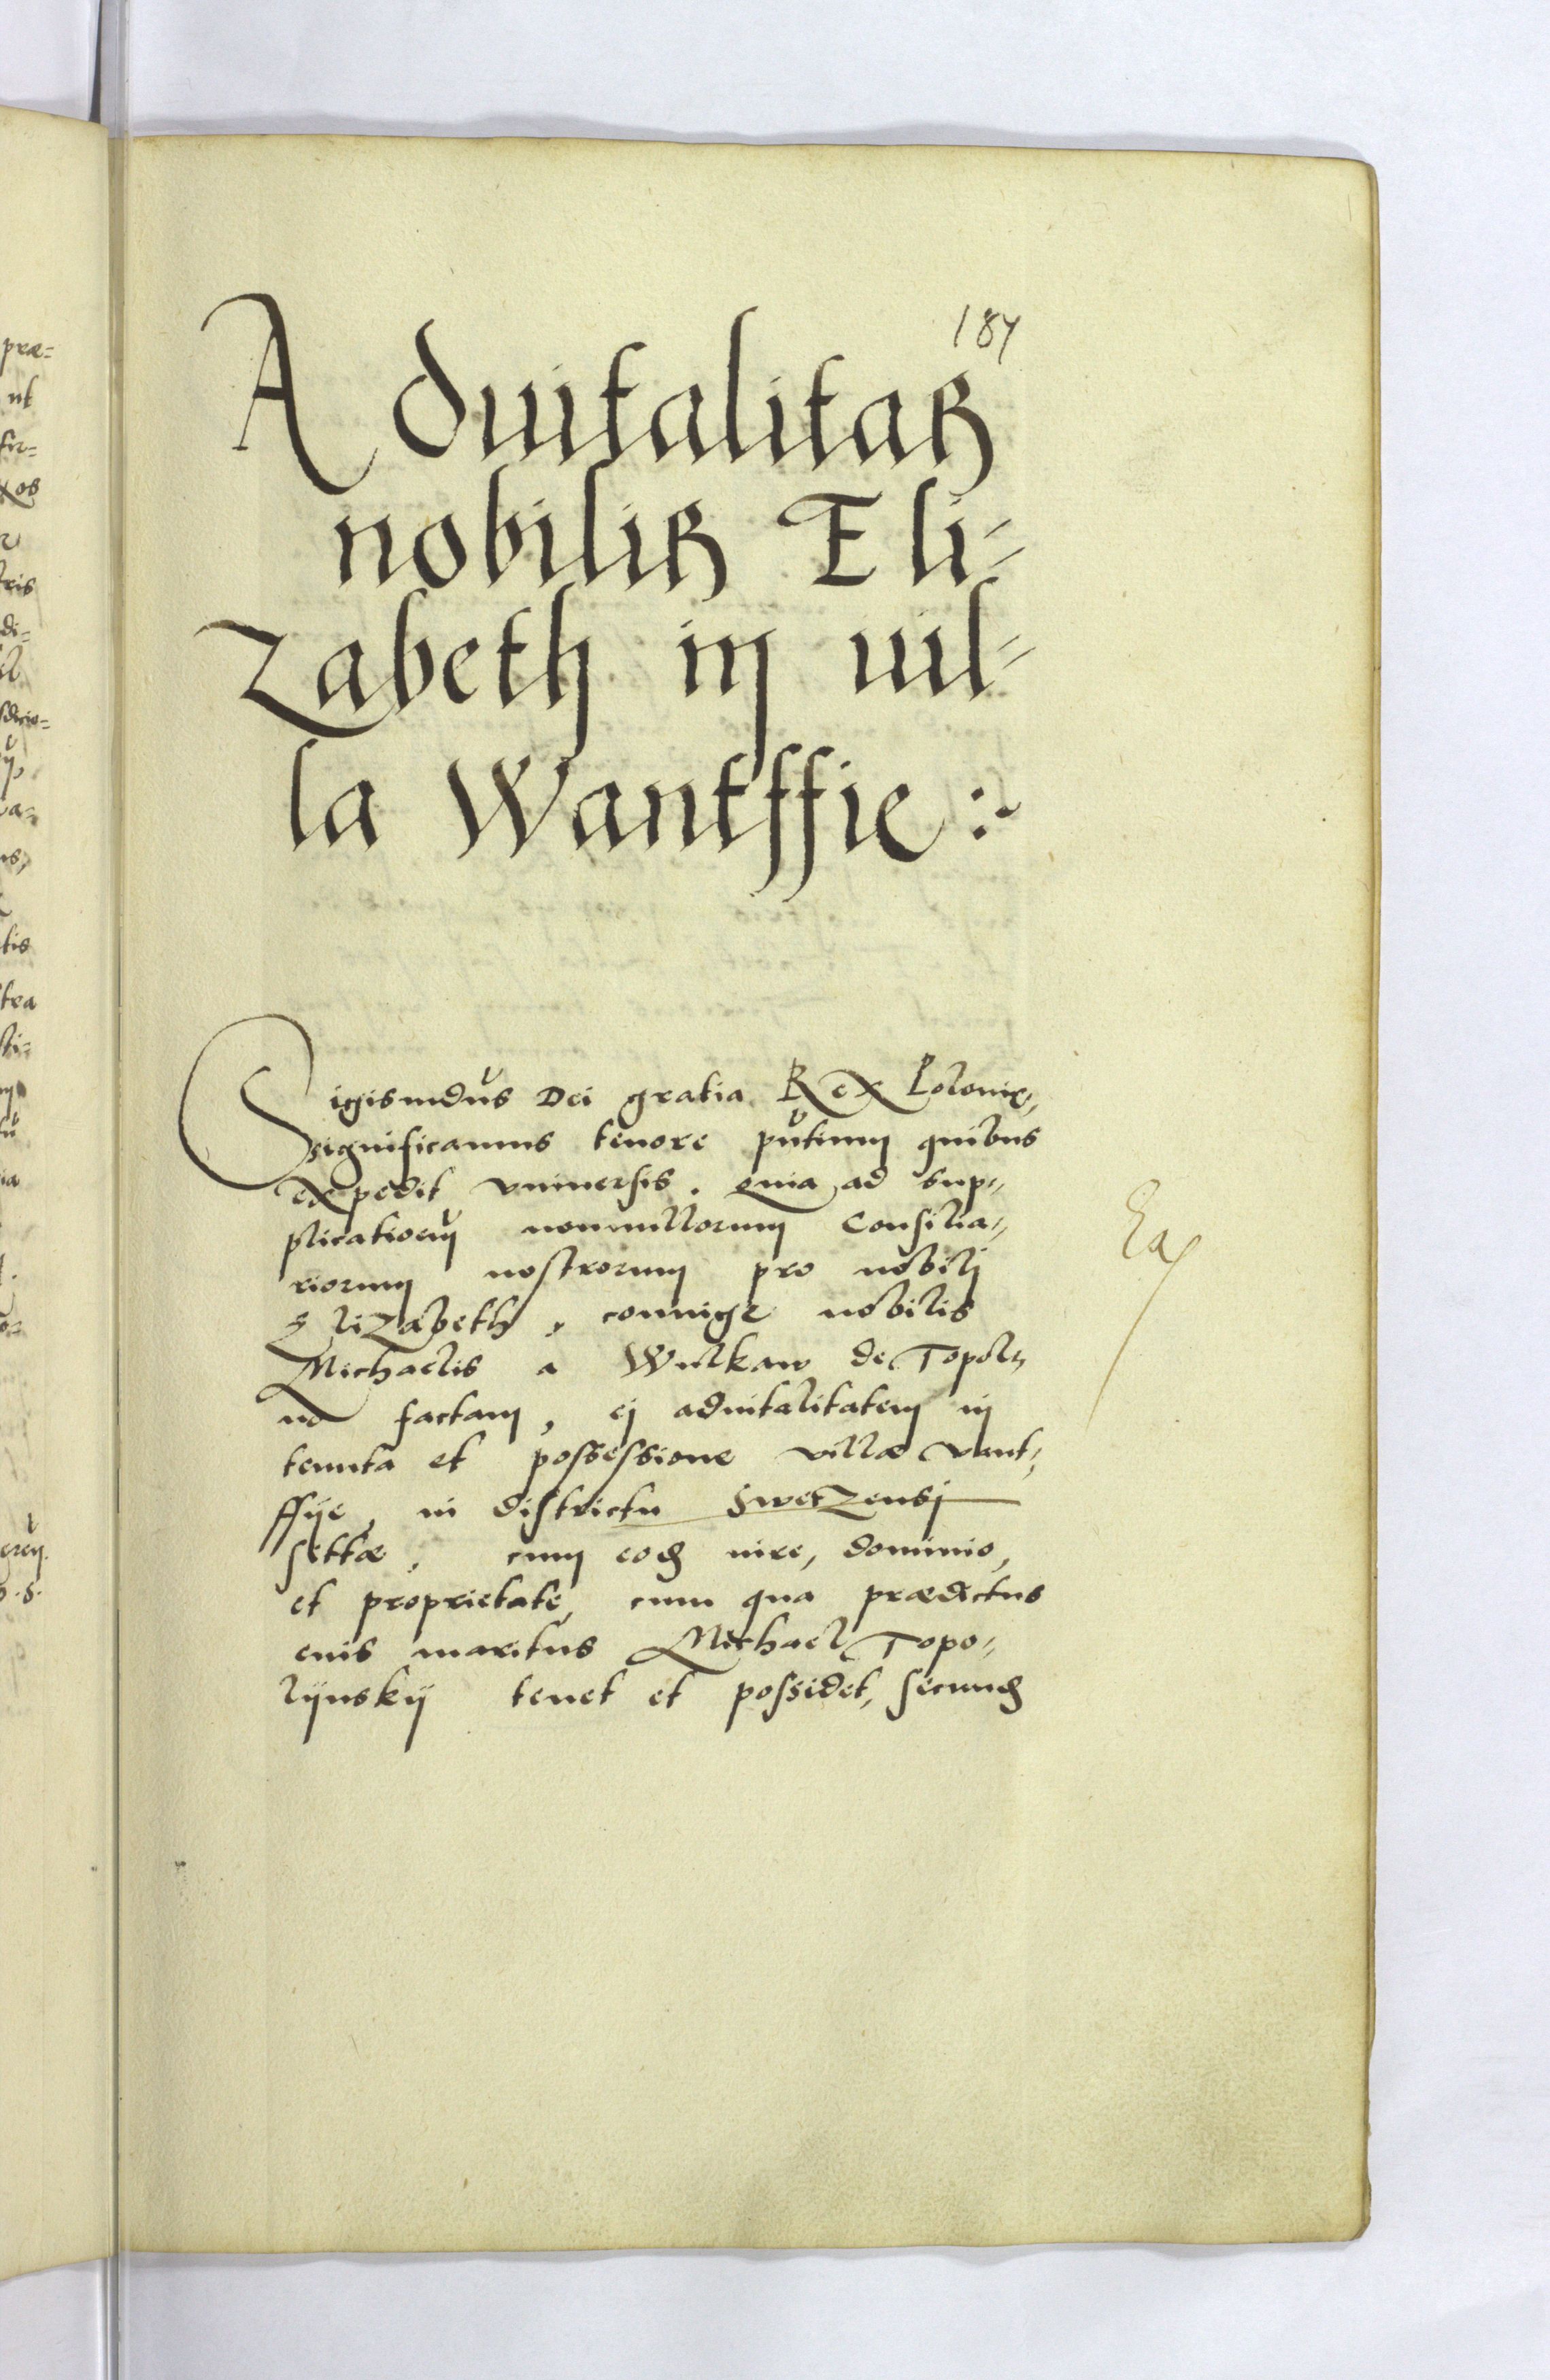 187
Aduitalitas
nobilis Eli-
zabeth in uil-
la Wantffie :~
Sigismdus Dei gratia Rex Poloniæ,
significamus tenore pntium quibus
expedit vniuersis. Quia ad sup-
plicationem nonnullorum Consilia-
riorum nostrorum pro nobili
Elizabeth, coniuge nobilis
Michaelis a Wulkaw de Topol-
no factam, ej aduitalitatem in
tenuta et possessione villæ vant-
ffije, in districtu Swetzensi
sittæ, cum eod iure, dominio,
et proprietate, cum qua prædictus
eius maritus Michael Topo-
lijnskij tenet et possidet, secund